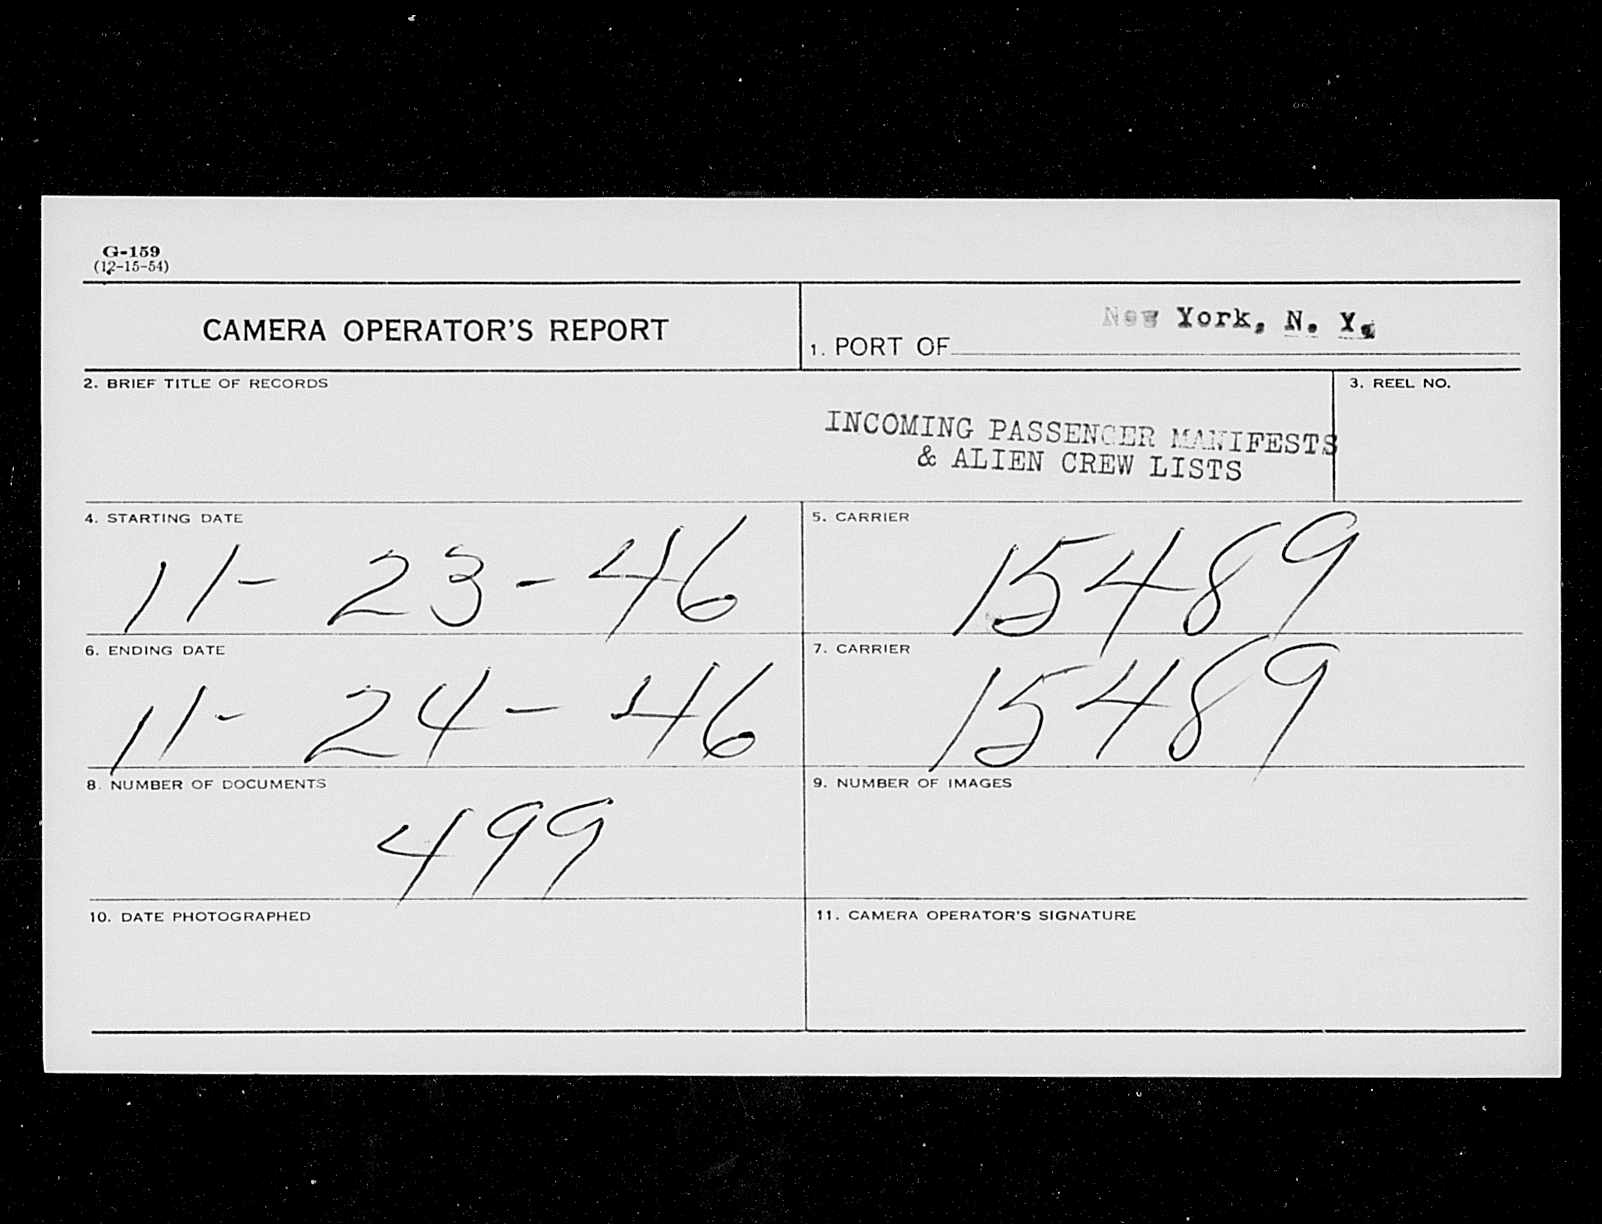 G-159
(12-15-54)
CAMERA OPERATOR'S REPORT
New York, N. Y.
1. PORT OF
2. BRIEF TITLE OF RECORDS
3. REEL NO.
INCOMING PASSENGER MANIFESTS
& ALIEN CREW LISTS
4. STARTING DATE
11- 23-46
5. CARRIER
15489
6. ENDING DATE
11- 24-46
7. CARRIER
15489
8. NUMBER OF DOCUMENTS
499
9. NUMBER OF IMAGES
10. DATE PHOTOGRAPHED
11. CAMERA OPERATOR'S SIGNATURE